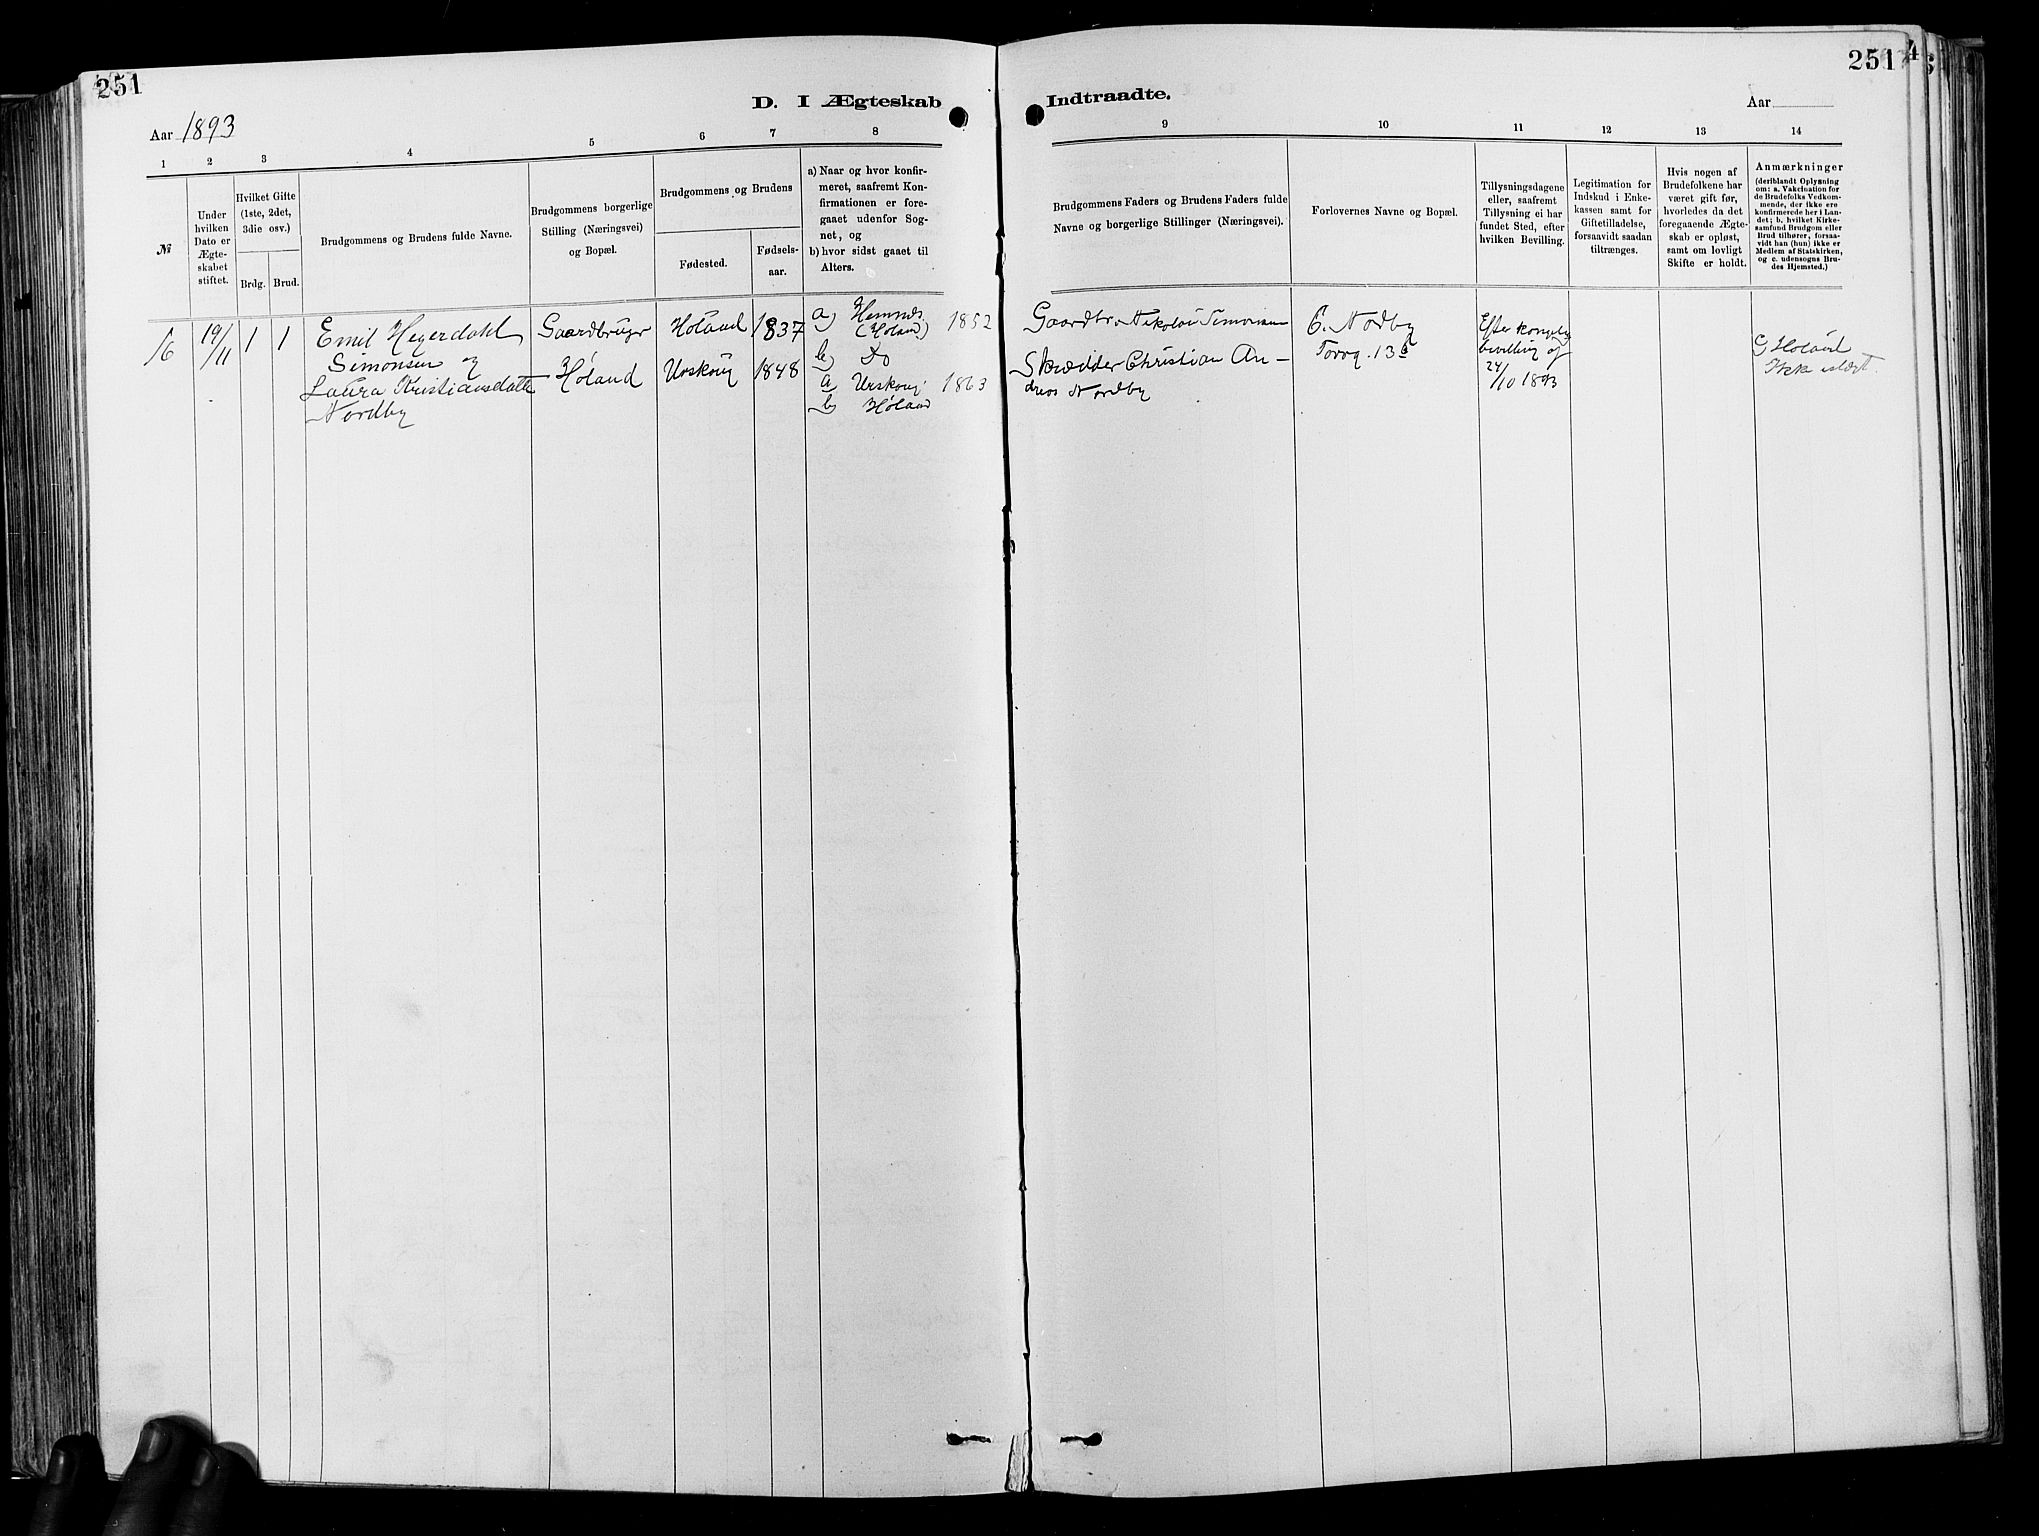 251
D. I Ægteskab
Indtraadte.
251
4
Aar 1893
Aar
1 2 3 4 5 6 7 8 9 10 11 12 13 14
№
Under
hvilken
Dato er
Ægte-
skabet
stiftet.
Hvilket Gifte
(1ste, 2det,
3die osv.)
Brdg. Brud.
Brudgommens og Brudens fulde Navne.
Brudgommens borgerlige
Stilling (Næringsvei)
og Bopæl.
Brudgommens og Brudens
Fødested.
Fødsels-
aar.
a) Naar og hvor konfir-
meret, saafremt Kon-
firmationen er fore-
gaaet udenfor Sog-
net, og
b) hvor sidst gaaet til
Alters.
Brudgommens Faders og Brudens Faders fulde
Navne og borgerlige Stillinger (Næringsvei).
Forlovernes Navne og Bopæl.
Tillysningsdagene
eller, saafremt
Tillysning ei har
fundet Sted, efter
hvilken Bevilling.
Legitimation for
Indskud i Enke-
kassen samt for
Giftetilladelse,
forsaavidt saadan
tiltrænges.
Hvis nogen af
Brudefolkene har
været gift før,
hvorledes da det
foregaaende Ægte-
skab er opløst,
samt om lovligt
Skifte er holdt.
Anmærkninger
(deriblandt Oplysning
om: a. Vakcination for
de Brudefolks Vedkom-
mende, der ikke ere
konfirmerede her i Lan-
det; b. hvilket Kirke-
samfund Brudgom eller
Brud tilhører, forsaa-
vidt han (hun) ikke er
Medlem af Statskirken,
og c. udensogns Bru-
des Hjemsted.)
16
19/11
1
1
Emil Hegerdahl
Simonsen og
Laura Kristiansdatter
Nordby
Gaardbruger
Høland
Høland
Urskoug
1837
1848
a) Hemnds. 1852
(Høland)
b) Do
a Urskoug 1863
b Høland
Gaardbr. Nikolai Simonsen
Skrædder Christian An-
dreas Nordby
C. Nordby
Torvg. 13
Efter kongelig
bevilling af
24/10 1893
c) Høland
Ikke slægt.